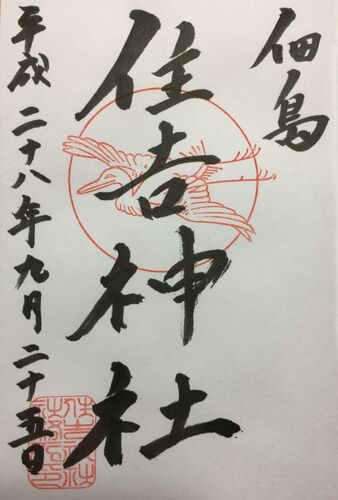 佃島
住吉神社
平成二十八年九月二十五日